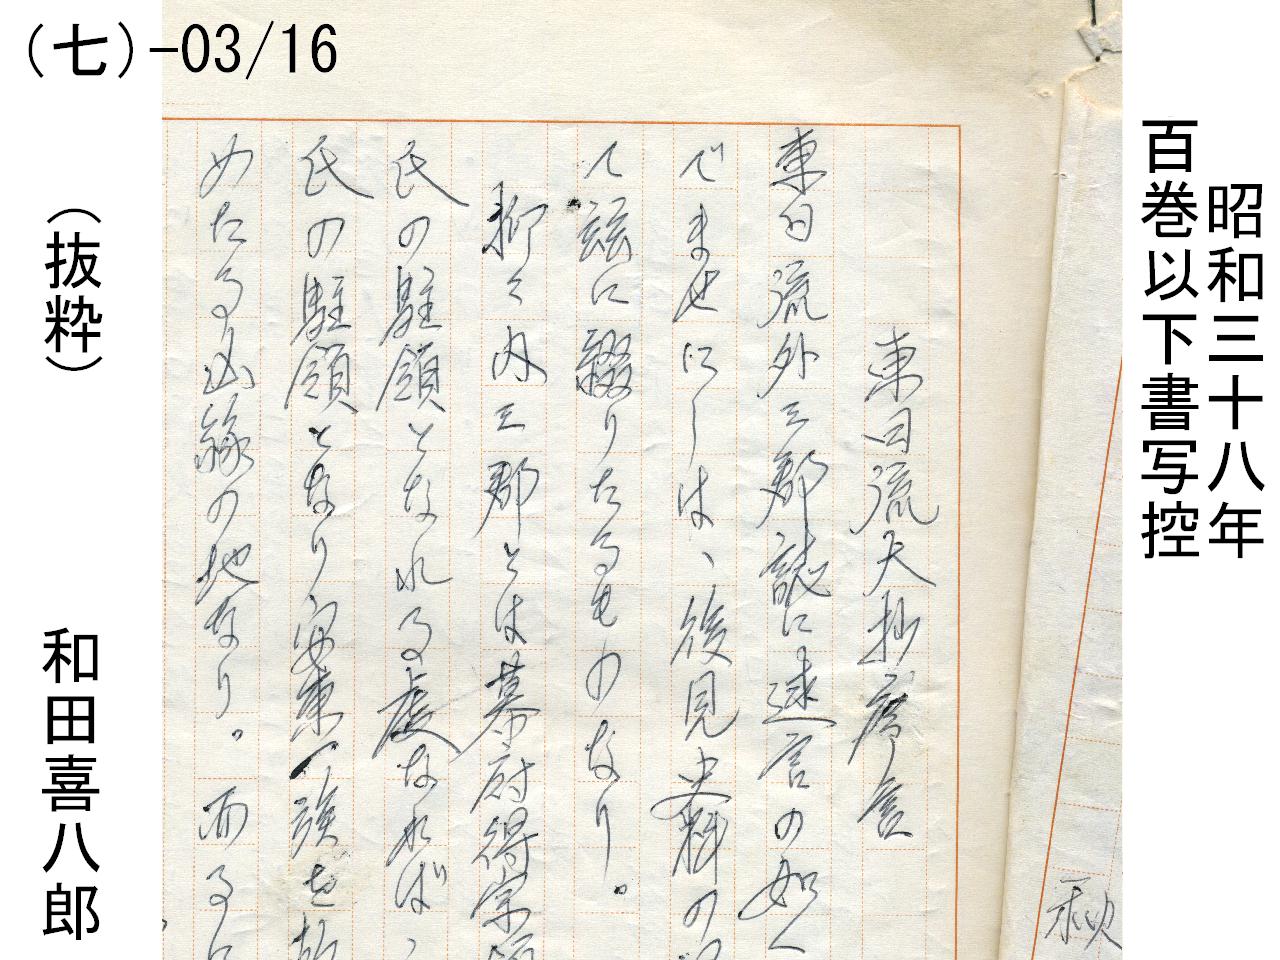 (七)-03/16
昭和三十八年
百巻以下書写控
秋
東日流大抄序言
東日流外三郡誌に述言の如く
でませにしは、後見史料の
て頭に綴りたるものなり。
抑々内三郡とは幕府得宗領
氏の駐領となれる處なれば、
氏の駐領となり安東一族を
めたる山縁の地なり。而るに
(抜粋)
和田喜八郎